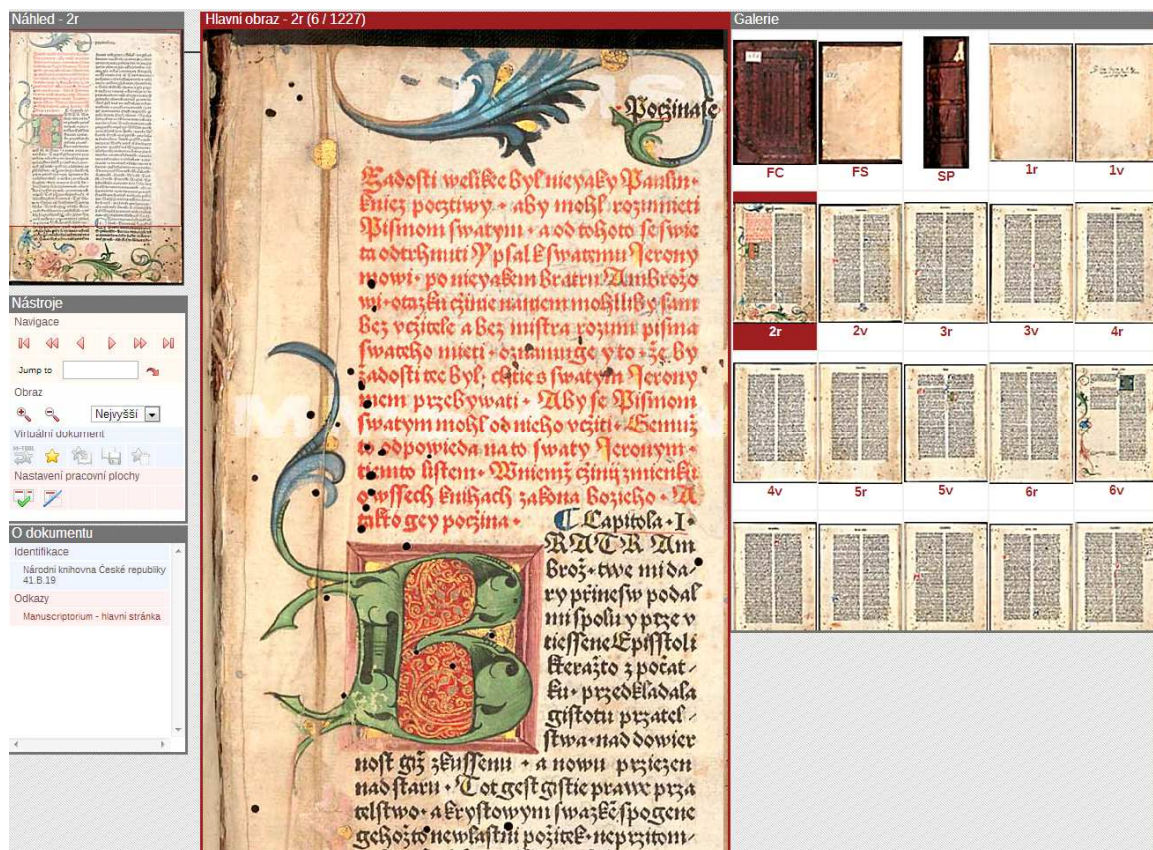 Náhled - 2r
Nástroje
Navigace
Jump to
Obraz
Nejvyšší
Virtuální dokument
Nastavení pracovní plochy
O dokumentu
Identifikace
Národní knihovna České republiky
41.B.19
Odkazy
Manuscriptorium - hlavní stránka
Hlavní obraz - 2r (6 / 1227)
Poczinase
Zadosti welikee byl nieyaky Paulin-
kniez pocztiwy • aby mohl rozumnieti
Pismom swatym • a od tohoto se swie
ta odtrhnuti Y psal k swatemu Jerony
mowi • po nieyakem bratru Ambrožo
wi • otazku czinie
bez vcžitele a bez mistra rozum pisma
swateho mieti • oznamuge y to • že by
žadosti tee byl, chtie s swatym Jerony
mem przebywati • Aby se Pismom
swatym mohl od nieho vcžiti • Gemuž
to odpowieda na to swaty Jeronym •
tiemto listem • Wniemž cžinij zmienku
o wssech knihach zakona Božieho • A
takto gey pocžina •
Capitola • I •
BRATR Am
brož • twe mi da-
ry przinesw podal
mi spolu y prze v
tiessene Episstoli
kteražto z počat-
ku • przedkladala
gistotu przatel-
stwa • nad dowier
nost giž zkussenu • a nowu prziezen
nad staru • Tot gest gistie prawe prza
telstwo • a krystowym swazkē spogene
gehožto newlastni požitek • neprzitom-
Galerie
FC
FS
SP
1r
1v
2r
2v
3r
3v
4r
4v
5r
5v
6r
6v